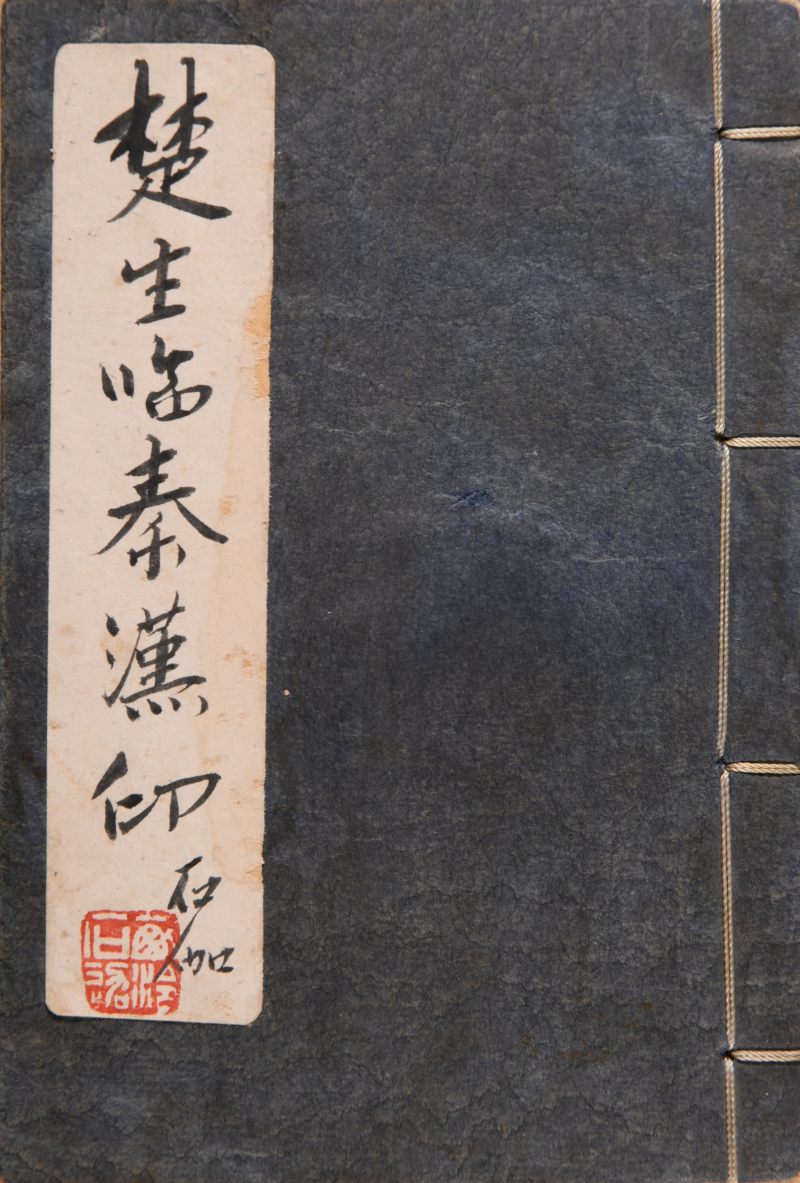 楚生临秦漢印
石伽